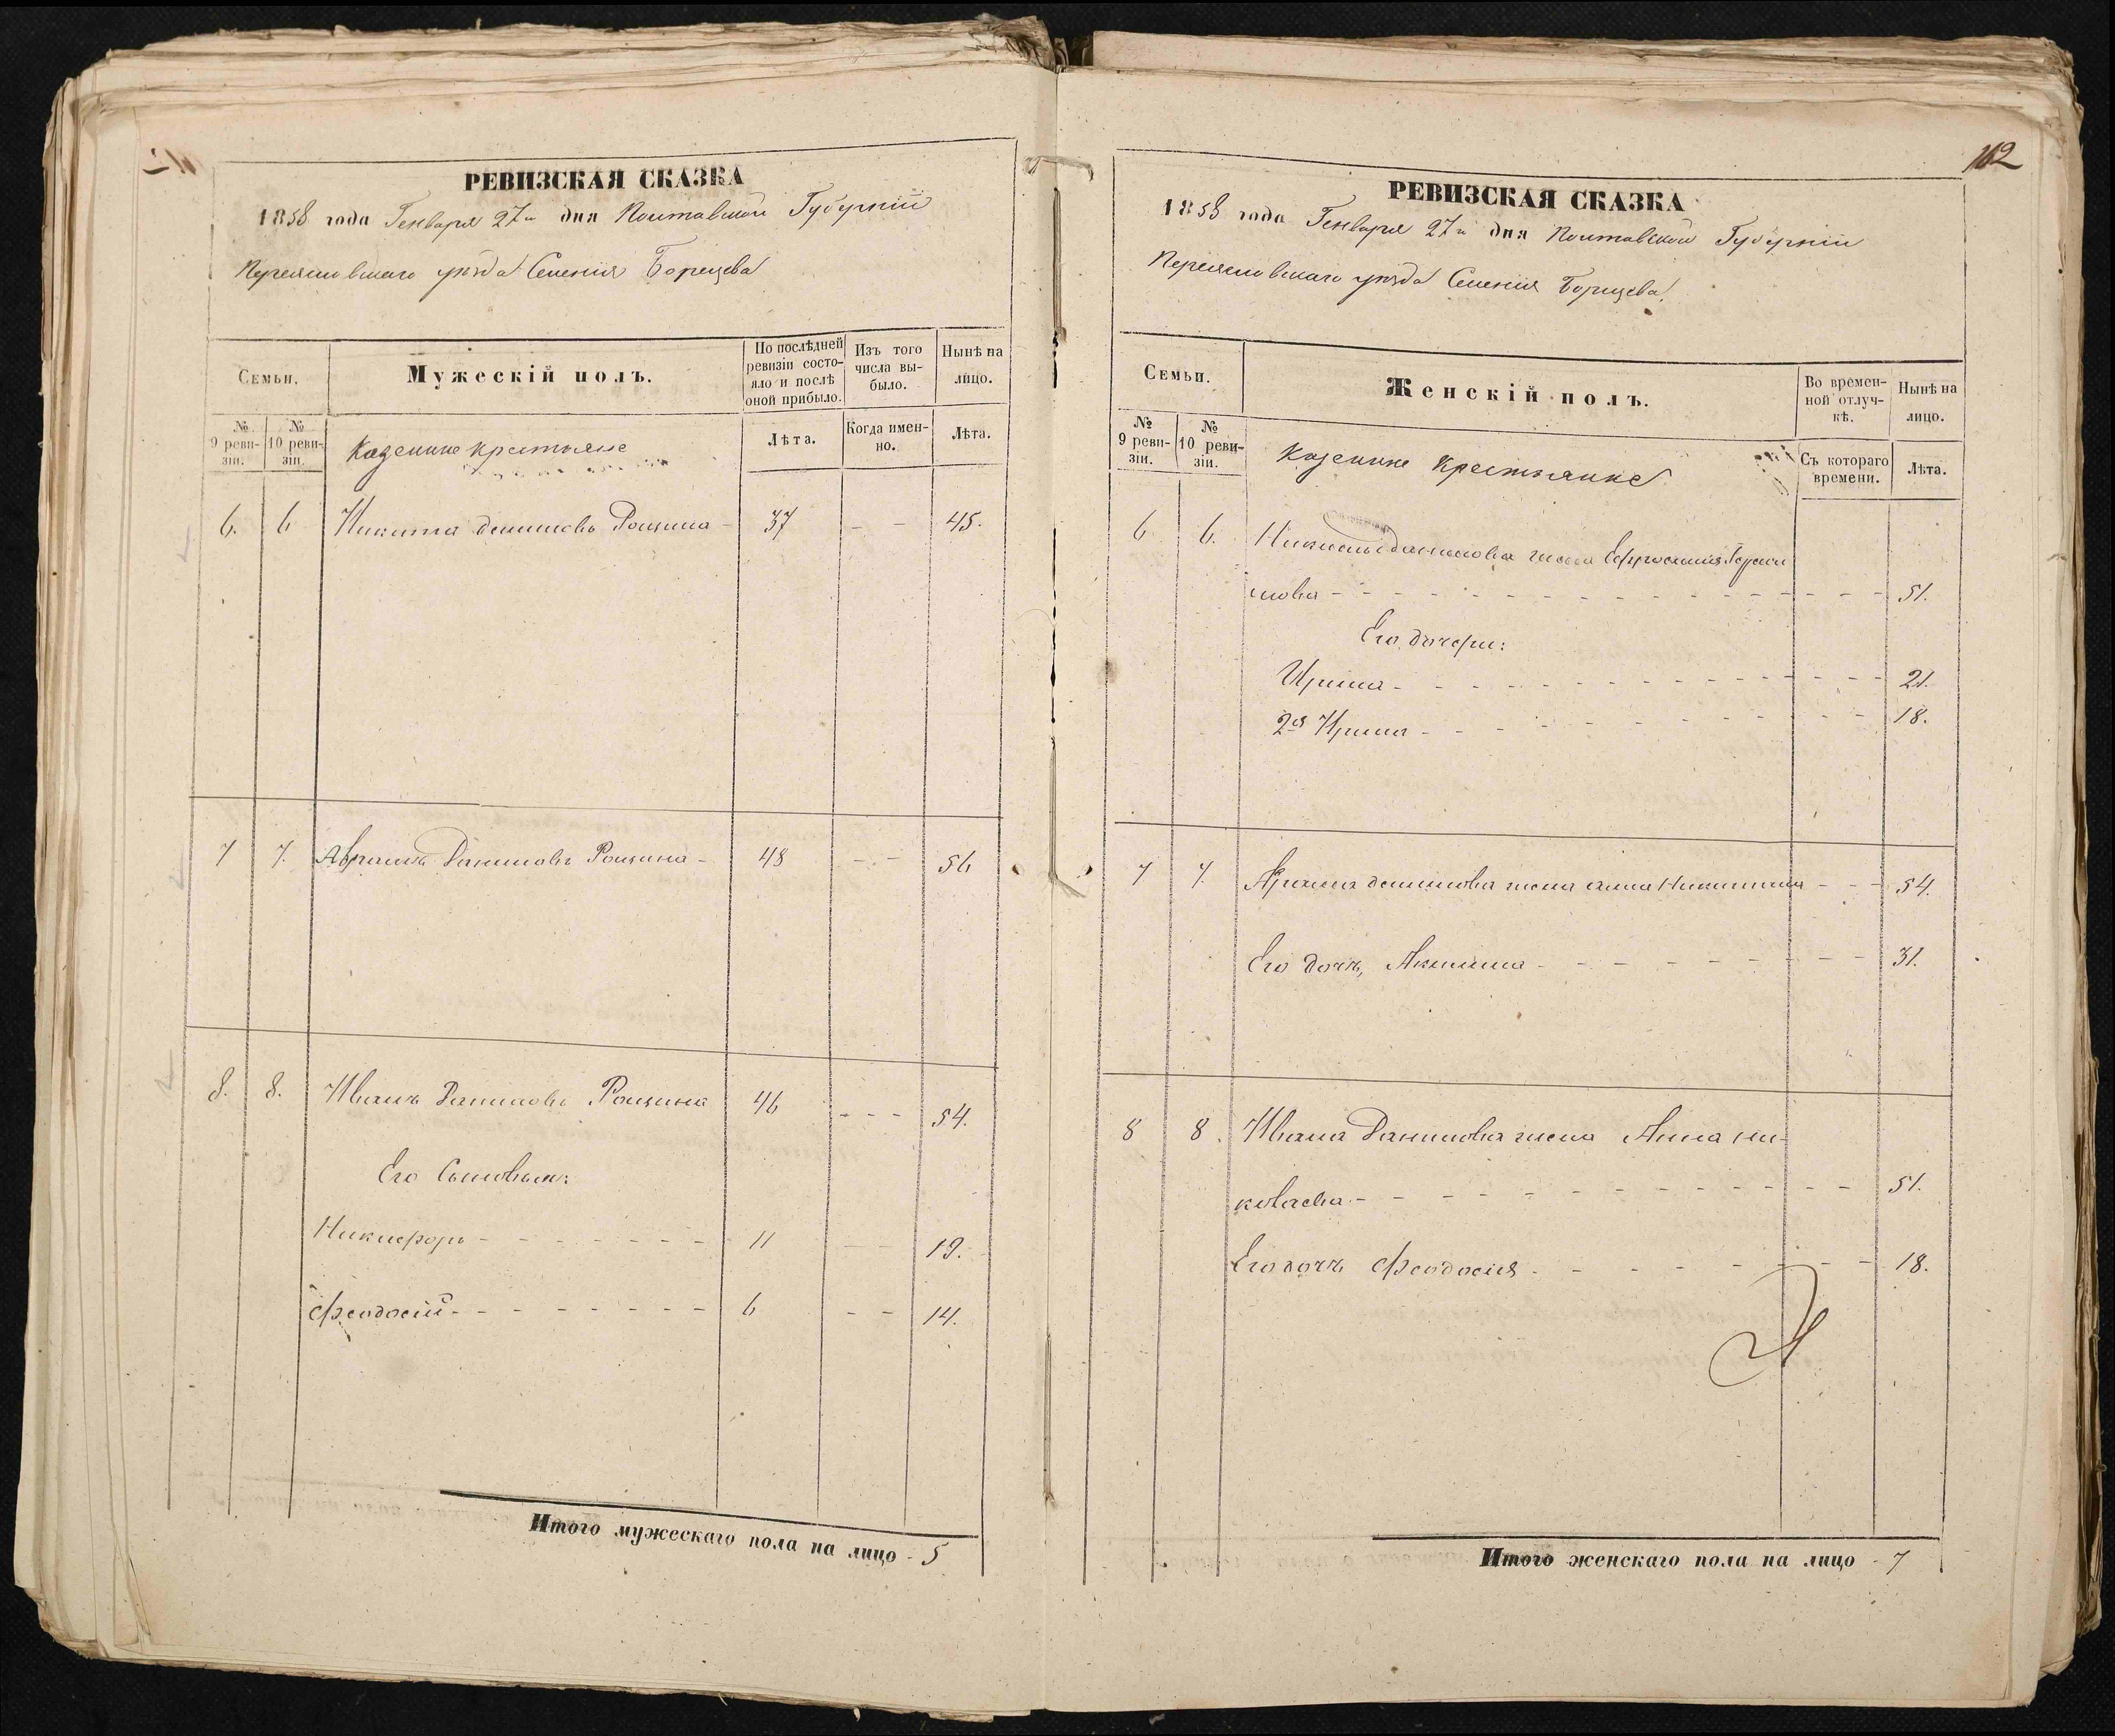 РЕВИЗСКАЯ СКАЗКА
1858 года Генваря 27го дня Полтавской Губерніи
Переяславскаго уѣзда Селенія Борщева
Семьи.
Мужескій полъ.
По послѣдней ревизіи состояло и послѣ оной прибыло.
Изъ того числа выбыло.
Нынѣ на лицо.
№ 9 ревизіи.
№ 10 ревизіи.
Казенные крестьяне
Лѣта.
Когда именно.
Лѣта.
6. 6 Никита Даниловъ Рощина - 37 - - 45.
7 7. Авраамъ Даниловъ Рощина - 48 - - 56
8. 8. Иванъ Даниловъ Рощина 46 - - - 54.
Его Сыновья:
Никифоръ - 11 - 19.
Феодосій - 6 - - 14.
Итого мужескаго пола на лицо - 5
112
РЕВИЗСКАЯ СКАЗКА
1858 года Генваря 27го дня Полтавской Губерніи
Переяславскаго уѣзда Селенія Борщева.
Семьи.
Женскій полъ.
Во временной отлучкѣ.
Нынѣ на лицо.
№ 9 ревизіи.
№ 10 ревизіи.
Казенные Крестьянке
Съ котораго времени.
Лѣта.
6 6. Никиты Данилова жена Ефросинія
51.
Его дочери:
Ирина - 21.
2я Ирина - 18.
7 7. Данилова жена Анна Никитина - - 54.
Его дочь, Акилина - 31.
8 8. Ивана Данилова жена Анна Ни-
колаева - 51.
Его дочь Феодосія - 18.
Итого женскаго пола на лицо - 7